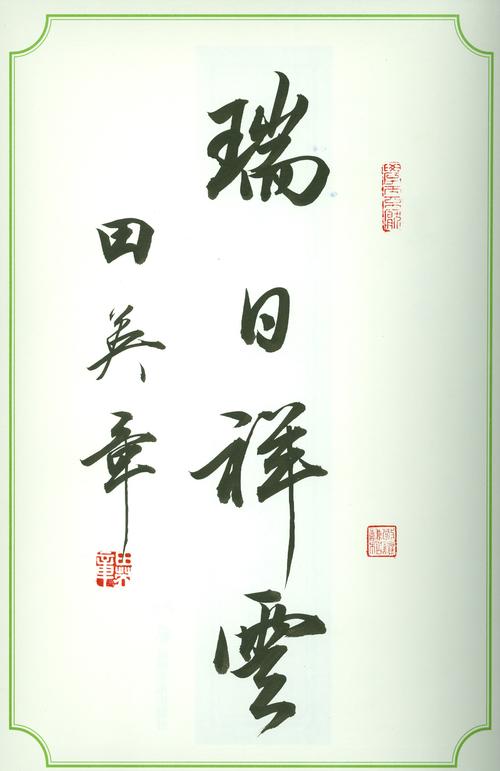 瑞日祥雲
田英章